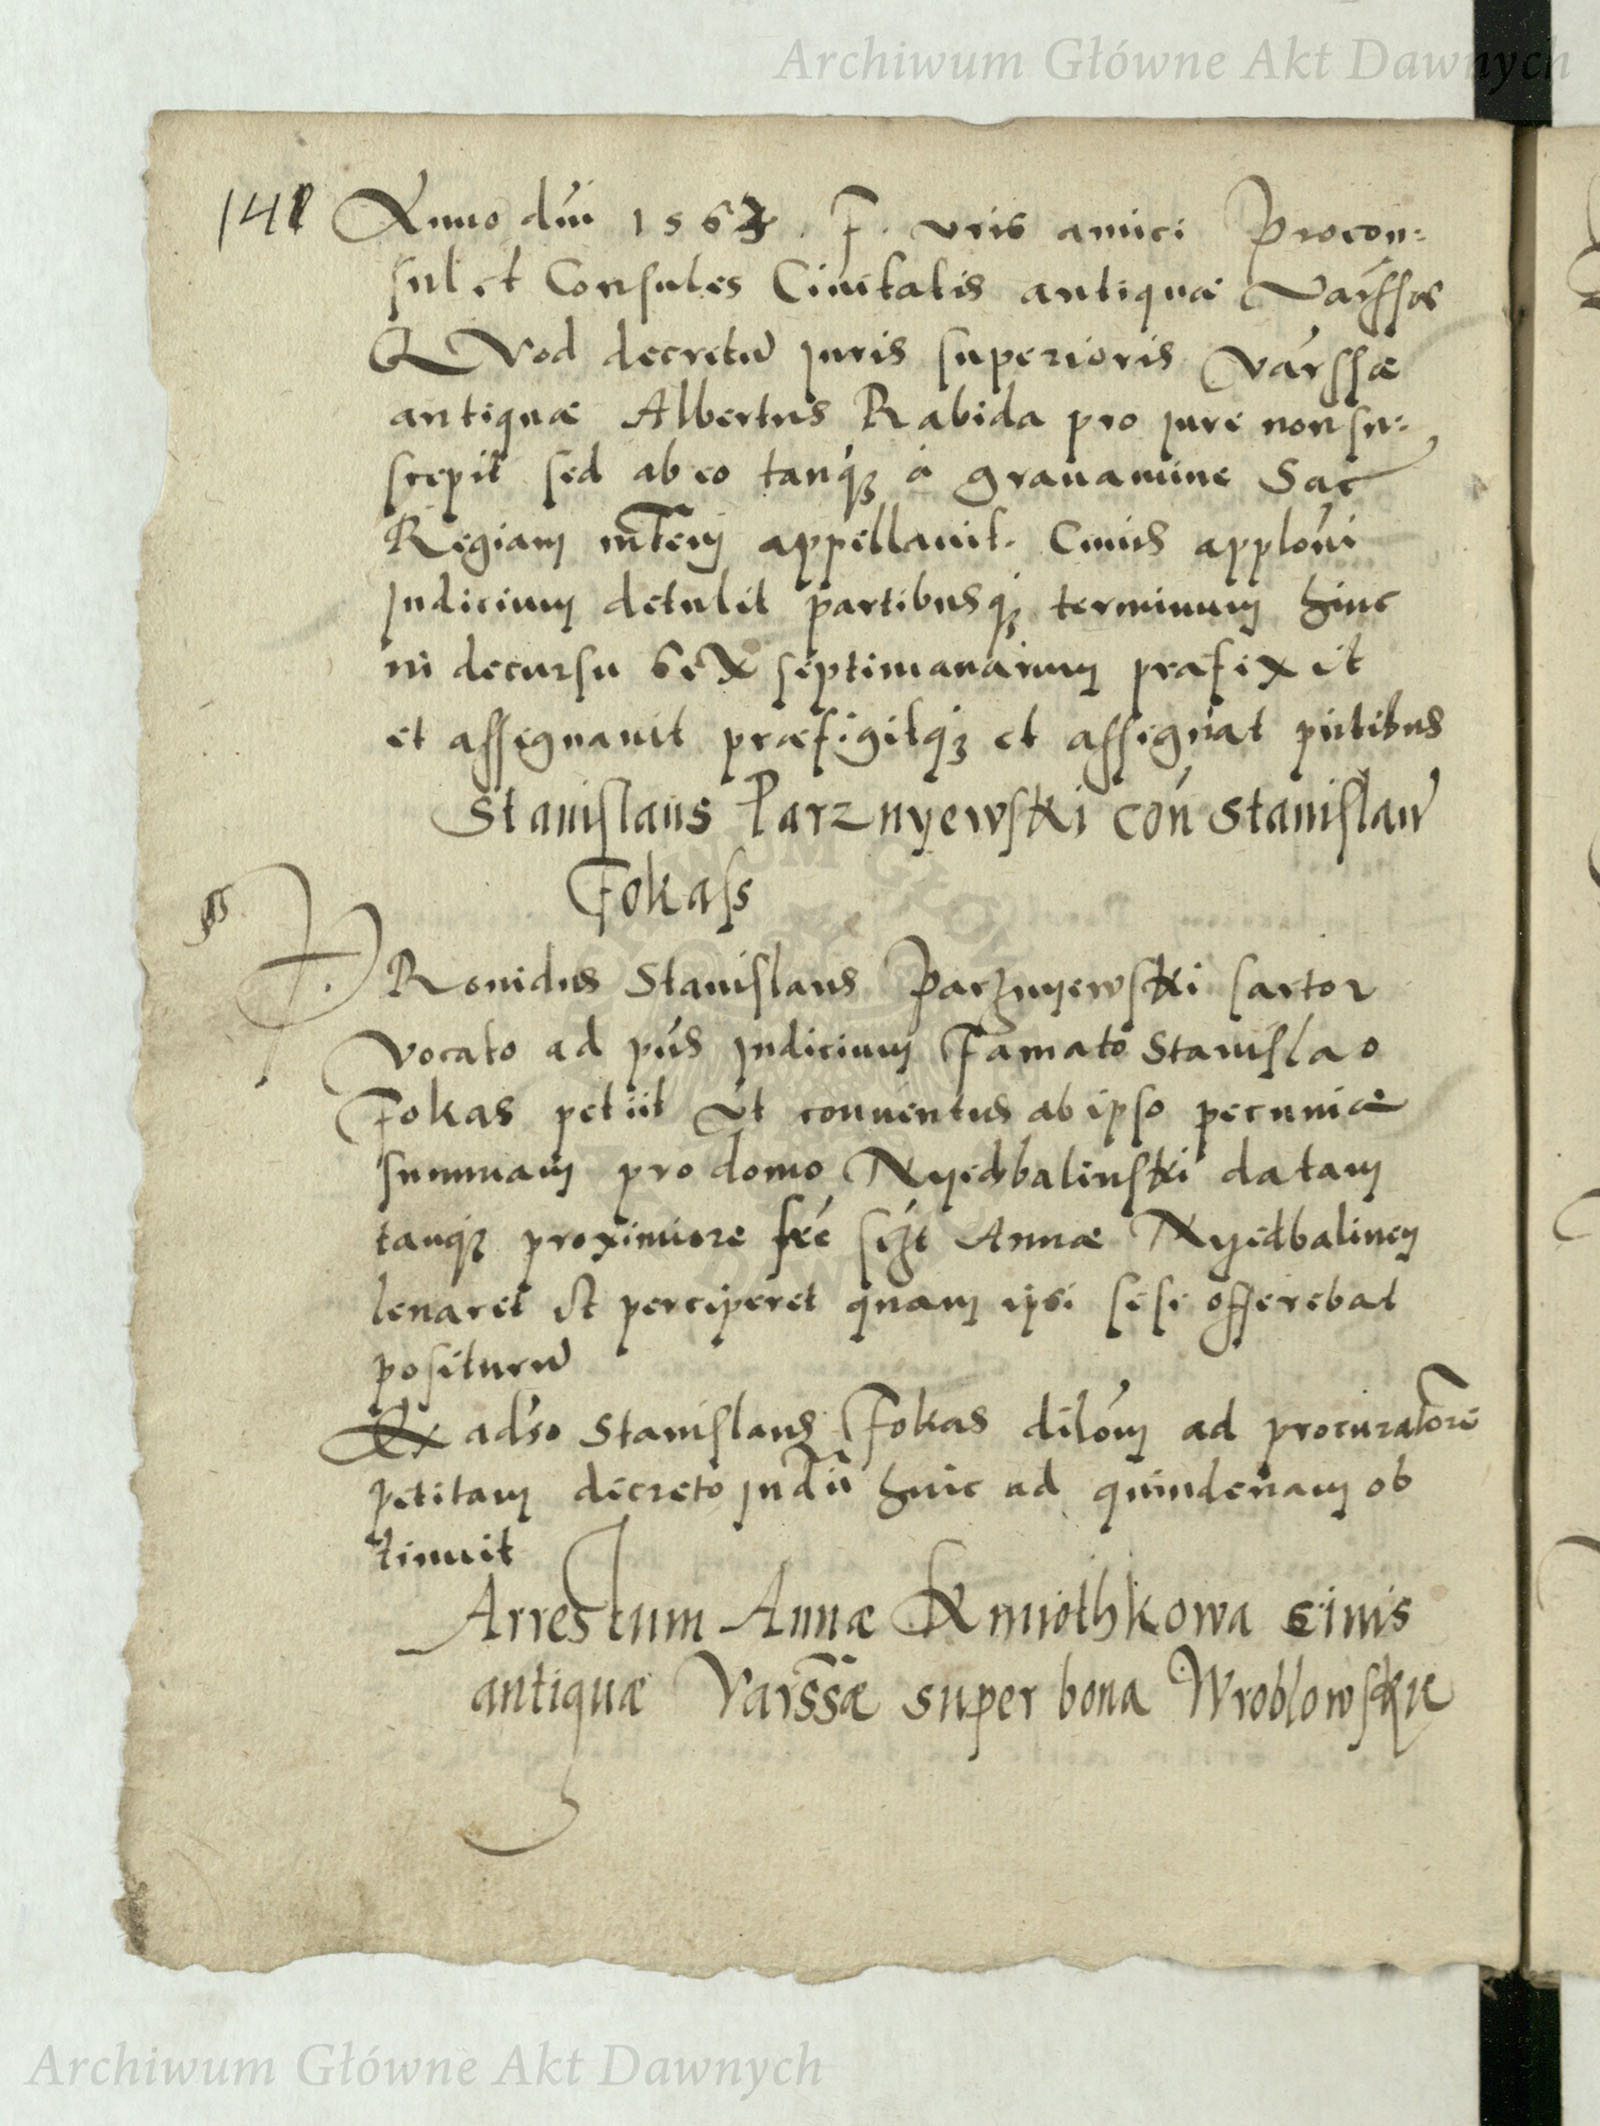 Archiwum Główne Akt Dawnych
141 Anno dni 1563. F. vris amici Procon=
sul et Consules Ciuitatis antiquæ Varssæ
QVod decretū iuris superioris Varssæ
antiquæ Albertus Rabida pro iure non su=
scepit sed ab eo tanq̃ȝ à grauamine Sac
Regiam mtem appellauit. Cuius applōni
Judicium detulit partibusqȝ terminum hinc
in decursu sex septimanarum præfixit
et assignauit præfigitqȝ et assignat pñtibus
Stanislaus Parznyewski cōn Stanislaū
Fokass
PRouidus Stanislaus Parznyewski sartor
vocato ad pñs iudicium Famato Stanislao
Fokas petiit vt conuentus ab ipso pecuniæ
summam pro domo Nyedbalinski datam
tanqȝ proximiore Annæ Nyedbalinem
leuaret et perciperet quam ipsi sese offerebat
positurū
Ex adũso Stanislaus Fokas dilōm ad procuratorē
petitam decreto iudii huic ad quindenam ob
tinuit
Arrestum Annæ Kmiothkowa ciuis
antiquæ Varssæ super bona Wroblowskie
Archiwum Główne Akt Dawnych